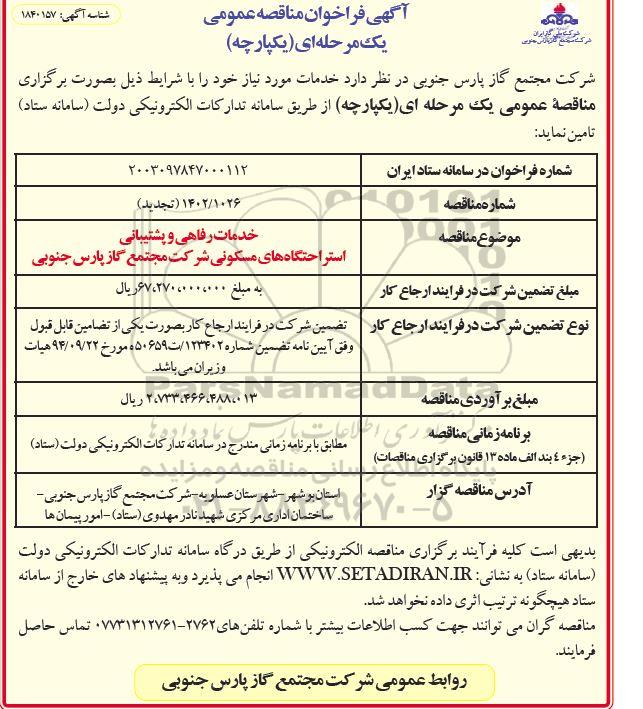 آگهی فراخوان مناقصه عمومی
یک مرحله‌ای (یکپارچه)
شناسه آگهی: ۱۸۴۰۱۵۷
شرکت ملی گاز ایران
شرکت مجتمع گاز پارس جنوبی
شرکت مجتمع گاز پارس جنوبی در نظر دارد خدمات مورد نیاز خود را با شرایط ذیل بصورت برگزاری
مناقصهٔ عمومی یک مرحله ای (یکپارچه) از طریق سامانه تدارکات الکترونیکی دولت (سامانه ستاد)
تامین نماید:
شماره فراخوان در سامانه ستاد ایران ۲۰۰۳۰۹۷۸۴۷۰۰۰۱۱۲
شماره مناقصه ۱۴۰۲/۱۰۲۶ (تجدید)
موضوع مناقصه خدمات رفاهی و پشتیبانی
استراحتگاه‌های مسکونی شرکت مجتمع گاز پارس جنوبی
مبلغ تضمین شرکت در فرایند ارجاع کار به مبلغ ۶۷،۲۷۰،۰۰۰،۰۰۰ ریال
نوع تضمین شرکت در فرایند ارجاع کار تضمین شرکت در فرایند ارجاع کار بصورت یکی از تضامین قابل قبول
وفق آیین نامه تضمین شماره ۱۲۳۴۰۲/ت۵۰۶۵۹ه مورخ ۹۴/۰۹/۲۲ هیات
وزیران می باشد.
مبلغ برآوردی مناقصه ۲،۷۳۳،۴۶۶،۴۸۸،۰۱۳ ریال
برنامه زمانی مناقصه
(جزء ٤ بند الف ماده ۱۳ قانون برگزاری مناقصات) مطابق با برنامه زمانی مندرج در سامانه تدارکات الکترونیکی دولت (ستاد)
آدرس مناقصه گزار استان بوشهر – شهرستان عسلویه – شرکت مجتمع گاز پارس جنوبی –
ساختمان اداری مرکزی شهید نادر مهدوی (ستاد) – امور پیمان ها
بدیهی است کلیه فرآیند برگزاری مناقصه الکترونیکی از طریق درگاه سامانه تدارکات الکترونیکی دولت
(سامانه ستاد) به نشانی: WWW.SETADIRAN.IR انجام می پذیرد وبه پیشنهاد های خارج از سامانه
ستاد هیچگونه ترتیب اثری داده نخواهد شد.
مناقصه گران می توانند جهت کسب اطلاعات بیشتر با شماره تلفن‌های ۲۷۶۲-۰۷۷۳۱۳۱۲۷۶۱ تماس حاصل
فرمایند.
روابط عمومی شرکت مجتمع گاز پارس جنوبی
ParsNamadData
پایگاه اطلاع رسانی مناقصه و مزایده